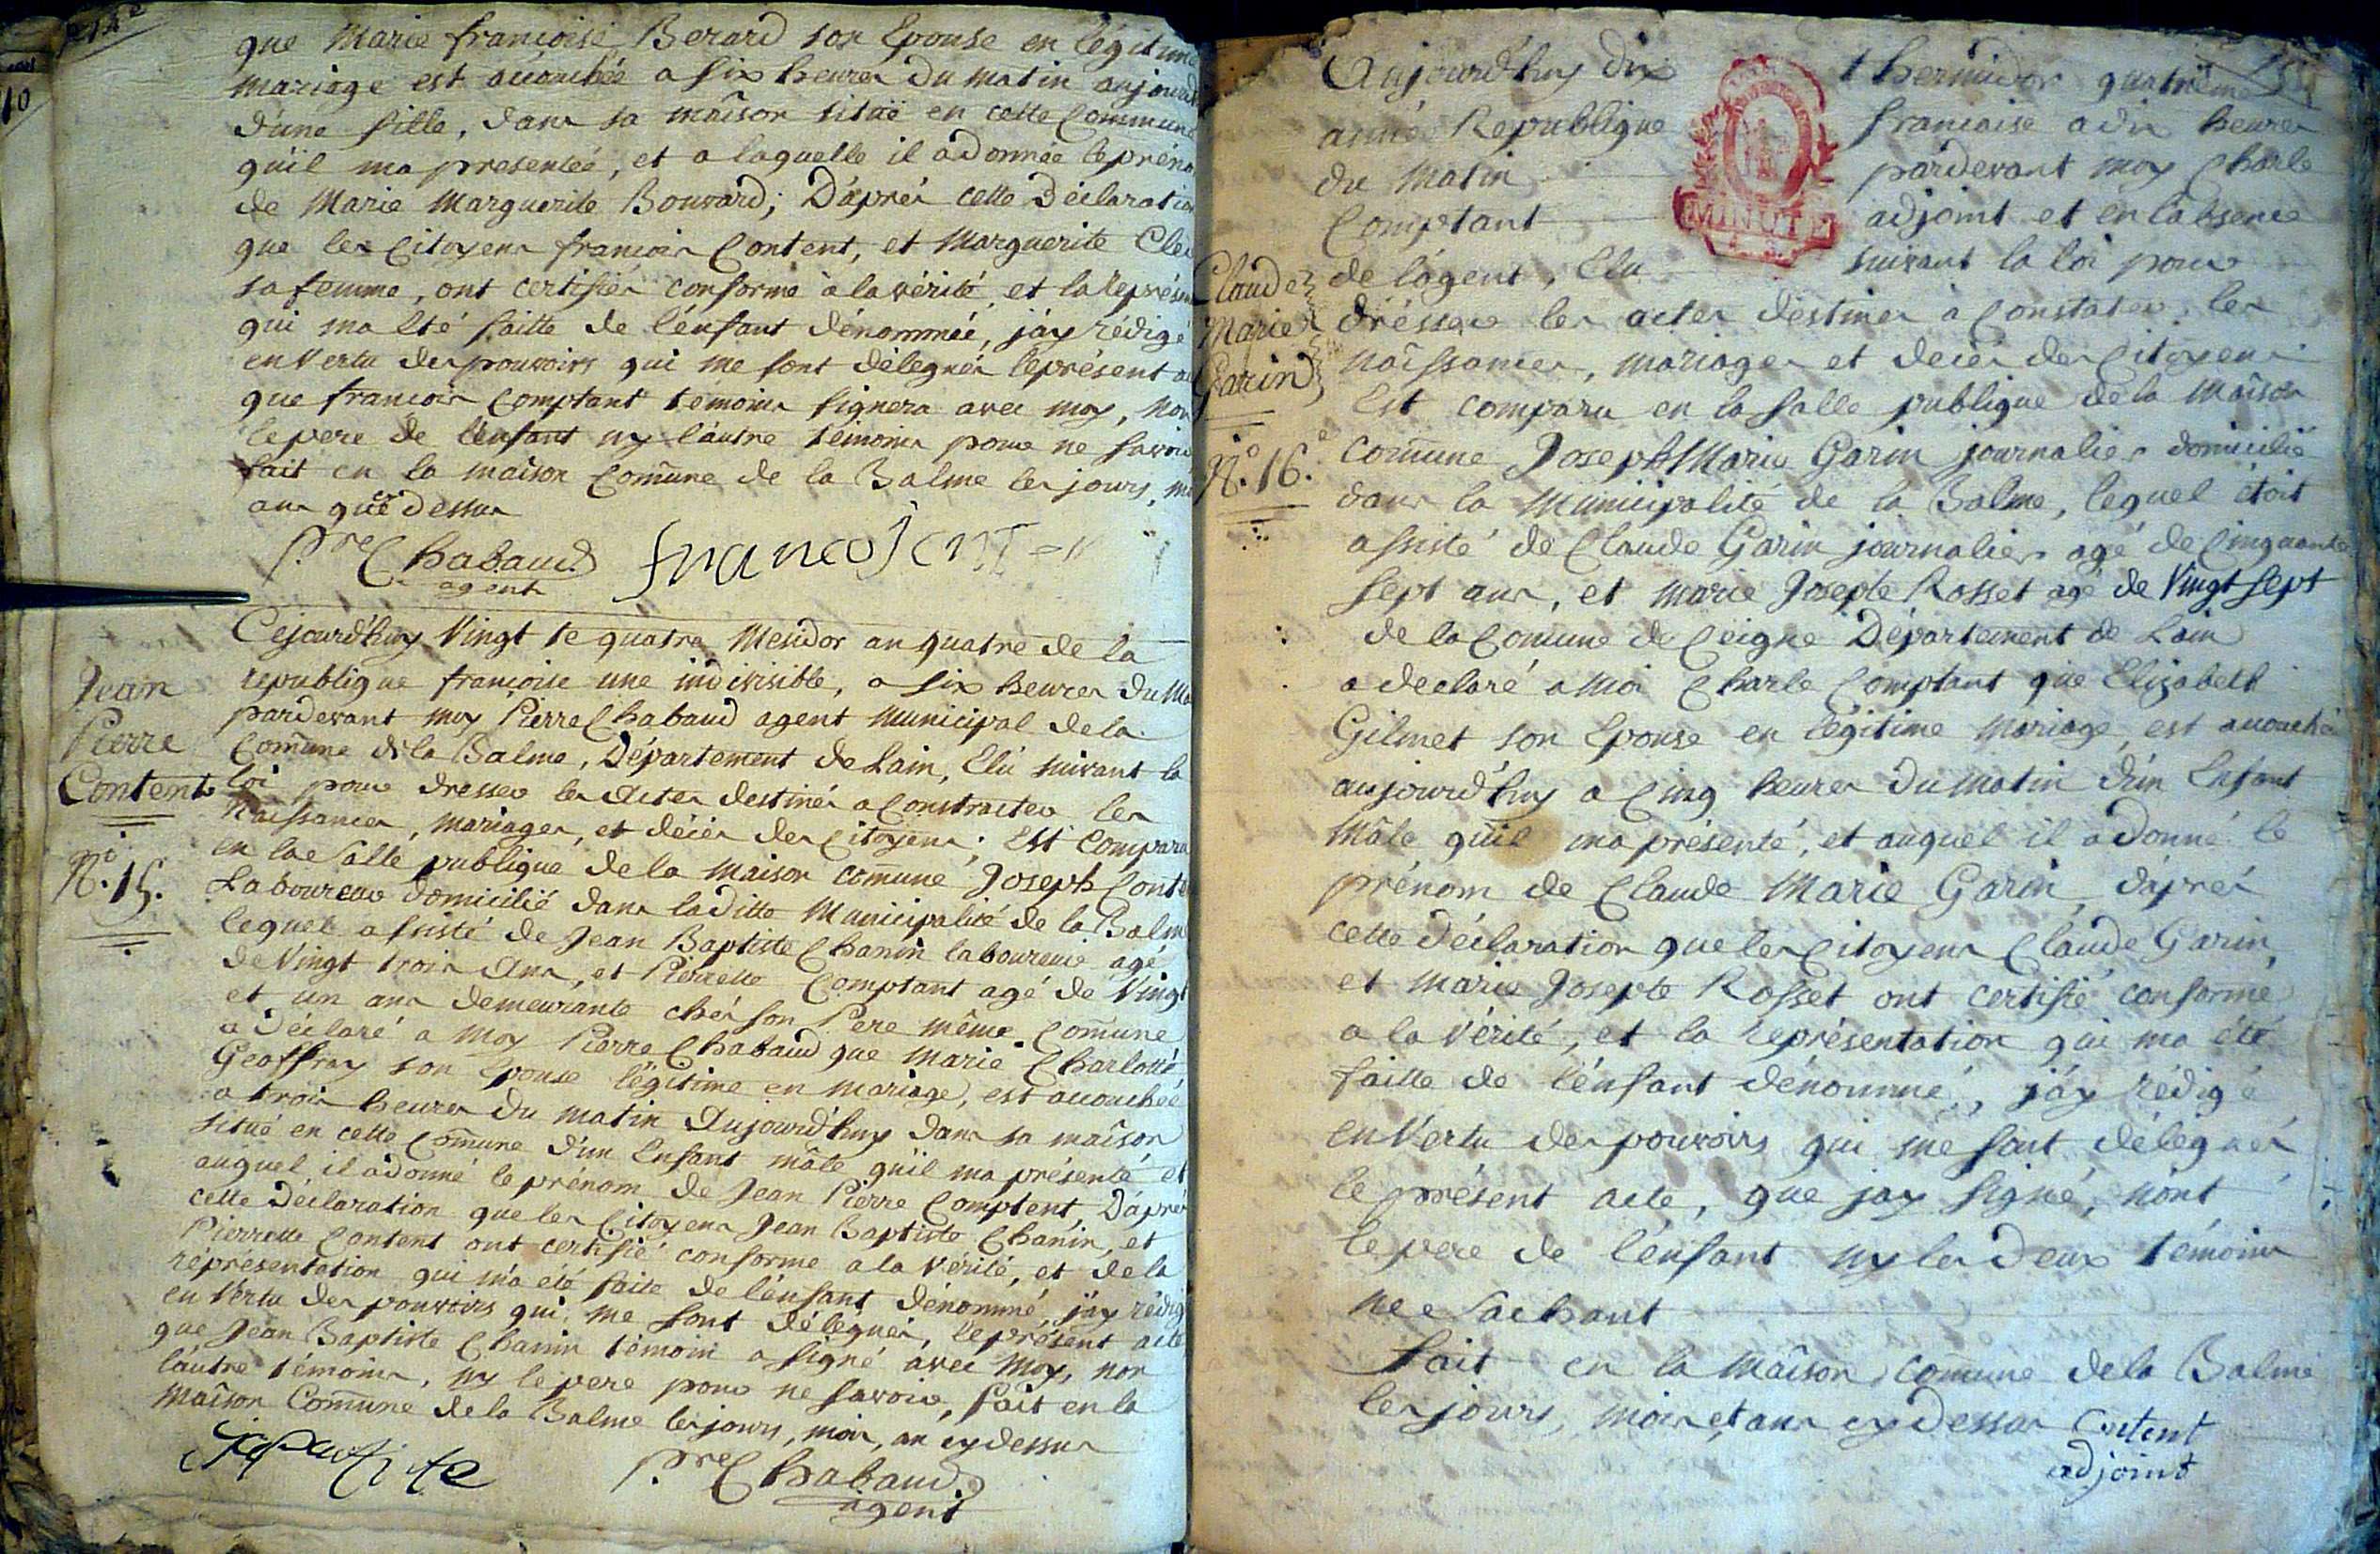 que Marie françoise Berard son Epouse en légitime
mariage est accouchée a six heures du matin aujourd
d'une fille, dans sa maîson situé en cette Commune
qu'il ma presentéé, et a laquelle il a donnée le préno
de Marie Marguerite Bouvard; D'aprés cette Déclaration
que les Citoyens françois Content, et Marguerite Cle
sa femme, ont certifiés conforme à la vérité, et la représen
qui ma Eté faitte de l'énfant dénomméé, j'áy rédigé
en Vertu des pouvoirs qui me sont délegués le présent a
que françois Comptant témoins signera avec moy, non
le pere de l'énfant ny l'áutre témoins pour ne savoir
fait en la maison Com̄une de la Balme les jours, m
ans que dessus
P.re Chabaud
agent
Jean
Pierre
Content
N.o 15.
Cejourd'huy Vingt te quatre Mesidor an quatre de la
république françoise une indivisible, a six heures du Ma
pardevant moy Pierre Chabaud agent Municipal de la
Com̄une de la Balme, Département de Lain, Elú suivant la
loi pour dresser les Actes destinés a Constracter les
Naissances, mariages, et décés des Citoyens; Est Comparu
en la Salle publique de la maison com̄une Joseph Conte
Laboureur domicilié dans la ditte Municipalité de la Balm
lequel assisté de Jean Baptiste Chanin laboureur agé
de Vingt trois Ans, et Pierrette Comptant agé de Vingt
et un ans demeurante chés son Pere même Com̄une
a déclaré a Moy Pierre Chabaud que Marie Charlotte
Geoffray son Epouse légitime en mariage, est accouchéé
a trois heures du matin Aujourd'huy dans sa maîson
situé en cette Com̄une d'un Enfant mâle qu'il ma présenté et
auquel il a donné le prénom de Jean Pierre Comptent, D'áprés
cette Déclaration que les Citoyens Jean Baptiste Chanin, et
Pierrette Content ont certifié conforme a la Vérité, et de la
réprésentation qui m'a été faite de l'énfant dénommé, j'áy rédig
en Vertu des pouvoirs qui me sont délégués, le présent acte
que Jean Baptiste Chanin témoin a signé avec Moy, non
l'áutre témoins, ny le pere pour ne savoir, fait en la
Maîson Com̄une de la Balme les jours, mois, an cy dessus
P.re Chabaud
agent
Aujourd'huy dix thermidor quatrième
année Republique francaise a dix heures
du Matin pardevant moy Charle
Comptant adjoint et en l'absence
de l'ágent, Elu suivant la loi pour
MINUTE
Claude
Marie
Garin
N.o 16.
drésser les actes déstinés à Constater les
naîssances, mariages et décés des Citoyens
Est comparu en la salle publique de la Maîson
com̄une Joseph Marie Garin journalier domicilié
dans la Municipalité de la Balme, lequel étoit
assisté de Claude Garin journalier agé de Cinquante
sept ans, et marie Josepte Rosset agé de Vingt sept
de la Comune de Ceigne Département de Lain
a declaré a Moi Charle Comptant que Elizabeth
Gilmet son Epouse en légitime Mariage, est accouché
aujourd'huy a Cinq heures du matin d'ún Enfant
Mâle qu'il ma présenté, et auquel il a donné le
prénom de Claude Marie Garin, d'áprés
cette déclaration que les Citoyens Claude Garin,
et Marie Josepte Rosset ont certifié conforme
a la Vérité, et la représentation qui ma été
faitte de l'énfant dénommé, j'áy rédigé
en Vertu des pouvoirs qui me sont délégués
le présent acte, que jay signé, nont
le pere de l'énfant ny les deux témoins
ne sachant
fait en la Maîson comune de la Balme
les jours, mois, et ans cy dessus Content
adjoint